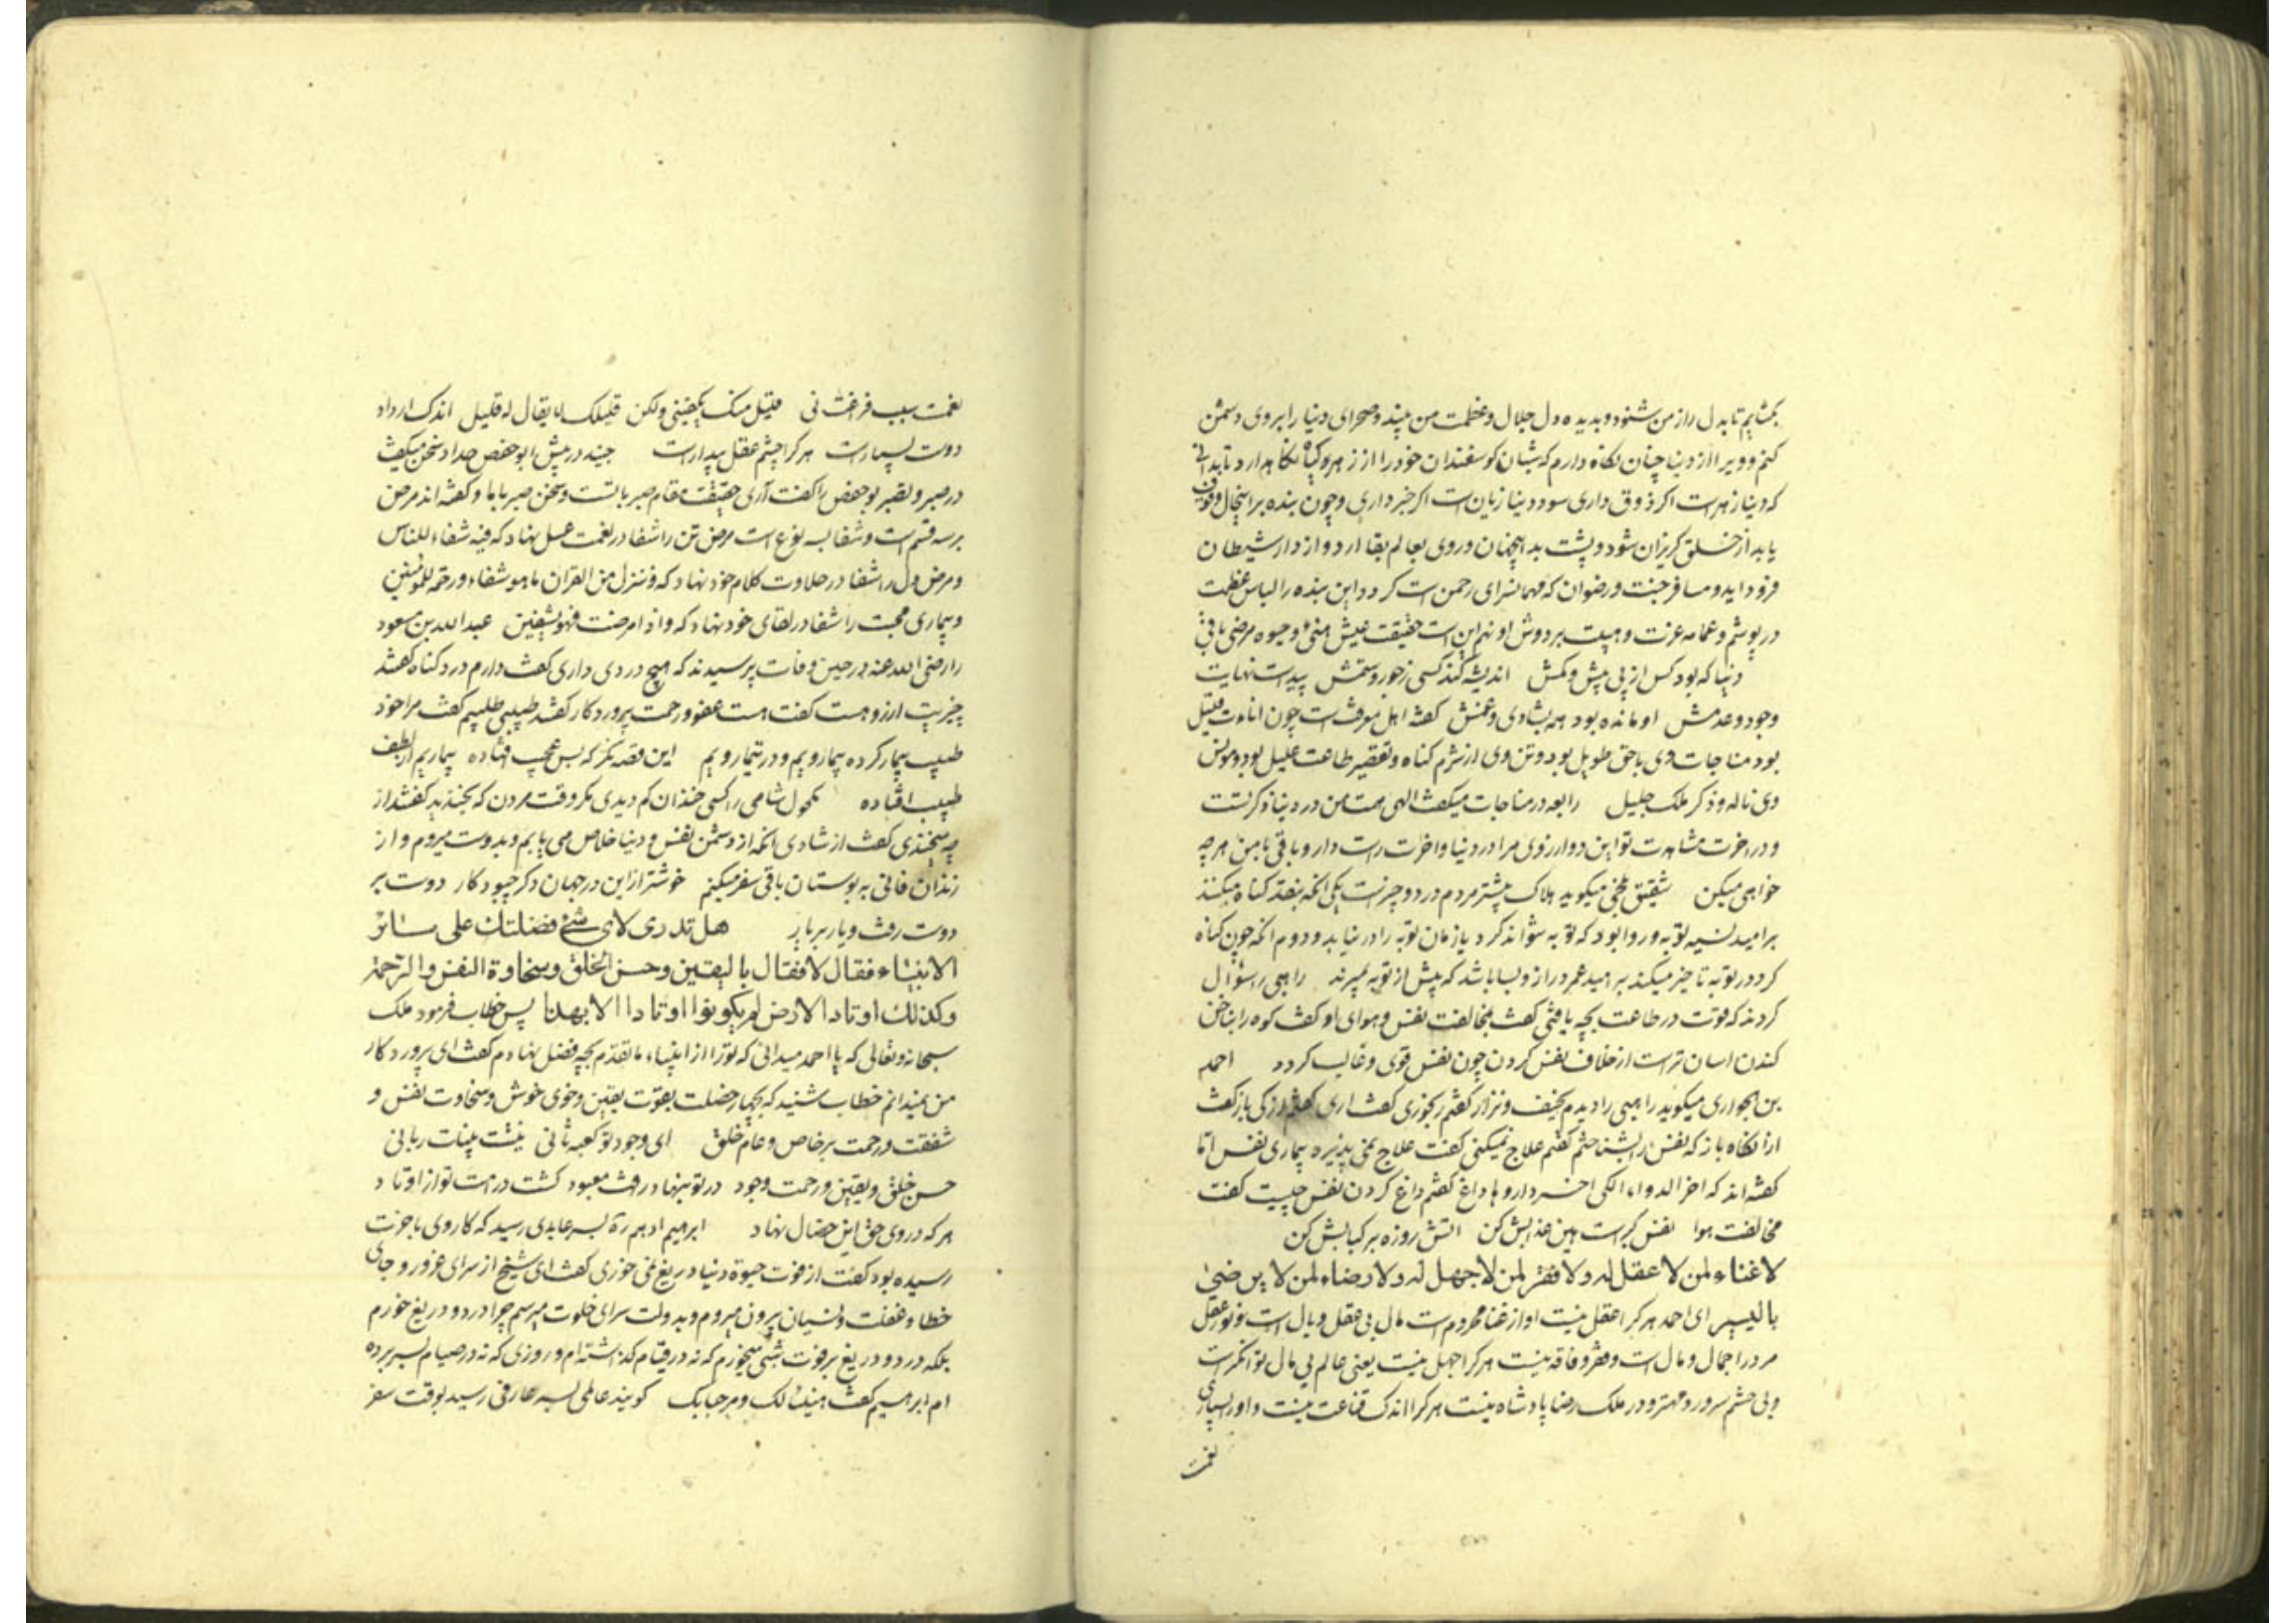 بکشایم تا بدل راز من شنود و بدیده دل جلال و عظمت من بیند و صحرای دنیا را بروی دشمن
کنم و ویرا از دنیا چنان نکاه دارم که شبان کوسفندان خود را از زهر و کیاه نکاهدارد تا بدانی
که دنیا زهرست اکر ذوق داری سود دنیا زیان ست اکر خبر داری و چون بنده بر اینحال وقوف
یابد از خلق کریزان شود و پشت بدینجهان و روی بعالم بقا ارد و از دار شیطان
فرود اید و مسافر جنت و رضوان که مهمانسرای رحمن است کردد این بنده را لباس عظمت
در پوشم و عمامه عزت و هیبت بر دوش او نهم این است حقیقت عیش هنی و حیوه مرضی باقی
دنیا که بود کس از پی بیش و کمش اندیشه کند کسی ز جور و ستمش پیدست نهایت
وجود و عدمش او مانده بود همه بشادی و غمش کفته اهل معرفت ست چون انات قلیل
بود مناجات وی با حق طویل بود و تن وی از شرم کناه و تقصیر طاعت علیل بود و مونس
وی ناله و ذکر ملک جلیل رابعه در مناجات میکفت الهی همت من در دنیا ذکر تست
و در اخرت مشاهدت تو این دو ارزوی مرا در دنیا و اخرت راست دار و باقی با من هرچه
خواهی میکن شقیق بلخی میکوید هلاک بیشتر مردم در دو چیزست یکی انکه بنقد کناه میکنند
بر امید نسیه توبه و روا بود که توبه نتواند کرد یا زمان توبه را در نیابد و دوم انکه چون کناه
کرد در توبه تاخیر میکند بر امید عمر دراز و بسا باشد که پیش از توبه بمیرند راهبی را سؤال
کردند که قوت در طاعت بچه یافتی کفت بمخالفت نفس و هوای او کفت کوه را بناخن
کندن اسان ترست از خلاف نفس کردن چون نفس قوی و غالب کردد احمد
بن الحواری میکوید راهبی را دیدم نحیف و نزار کفتم رنجوری کفت اری کفتم از کی باز کفت
از انکاه باز که نفس را بشناختم کفتم علاج نمیکنی کفت علاج نمی پذیرد بیماری نفس اما
کفته اند که اخر الدواء الکی اخر داروها داغ کفتم داغ کردن نفس چیست کفت
مخالفت هوا نفس کبرست هین عذابش کن اتش روزه بر کبابش کن
لا غناء لمن لا عقل له ولا فقر لمن لا جهل له ولا رضاء لمن لا یرضی
بالیسیر ای احمد هر کرا عقل نیست او از غنا محروم است مال بی عقل وبال است و نور عقل
مرد را جمال و مال است و فقر و فاقه نیست هر کرا جهل نیست یعنی عالم بی مال توانکرست
و بی حشم سرور و مهتر و در ملک رضا پادشاه نیست هر کرا اندک قناعت نیست و او را بسیاری
نعمت
نعمت سبب فراغت نی قلیل منک یکفینی ولکن قلیلک لا یقال له قلیل اندک ار داد
دوست بسیارست هر کرا چشم عقل بیدارست جنید در پیش ابو حفص حداد سخن میکفت
در صبر و تقصیر بو حفص کفت آری حقیقت مقام صبر باتست و سخن صبر با ما و کفته اند مرض
بر سه قسم است و شفا بسه نوع است مرض تن را شفا در نعمت عسل نهاد که فیه شفاء للناس
و مرض دل را شفا در حلاوت کلام خود نهاد که و ننزل من القران ما هو شفاء و رحمه للمؤمنین
و بیماری محبت را شفا در لقای خود نهاد که و اذا مرضت فهو یشفین عبد الله بن مسعود
را رضی الله عنه در حین وفات پرسیدند که هیچ دردی داری کفت دارم درد کناه کفتند
چیزیت ارزو هست کفت هست عفو و رحمت پروردکار کفتند طبیبی طلبیم کفت مرا خود
طبیب بیمار کرده بیمارویم و در تیمار ویم این قصه نکر که بس عجب افتاده بیماریم از لطف
طبیب افتاده مکحول شامی را کسی خندان کم دیدی مکر وقت مردن که بخندید کفتند از
چه میخندی کفت از شادی انکه از دشمن نفس و دنیا خلاص می یابم و بدوست میروم و از
زندان فانی به بوستان باقی سفر میکنم خوشتر از این در جهان دکر چبود کار دوست بر
دوست رفت و یار بر یار هل تدری لای شئ فضلتک علی سائر
الانبیاء فقال لا فقال بالیقین وحسن الخلق وسخاوة النفس والرحمة
وکذلک اوتاد الارض لم یکونوا اوتادا الا بهذا پس خطاب فرمود ملک
سبحانه و تعالی که یا احمد میدانی که تو را از انبیاء ما تقدم بچه فضل نهادم کفت ای پروردکار
من نمیدانم خطاب شنید که بچهار خصلت بقوت یقین و خوی خوش و سخاوت نفس و
شفقت و رحمت بر خاص و عام خلق ای وجود تو کعبه ثانی نیتت بینات ربانی
حسن خلق و یقین و رحمت وجود در تو بنهاد رافت معبود کشت در امت تو از اوتاد
هر که در وی حق این خصال نهاد ابراهیم ادهم ره بسر عابدی رسید که کار وی باخرت
رسیده بود کفت از فوت حیوة دنیا دریغ نمی خوری کفت ای شیخ از سرای غرور و جای
خطا و غفلت و نسیان بیرون میروم و بدولت سرای خلوت میرسم چرا درد و دریغ خورم
بلکه درد و دریغ بر فوت شبی میخورم که نه در قیام کذاشته ام و روزی که نه در صیام بسر برده
ام ابراهیم کفت هنیئا لک و مرحبا بک کویند عاملی بسر عارفی رسید بوقت سفر